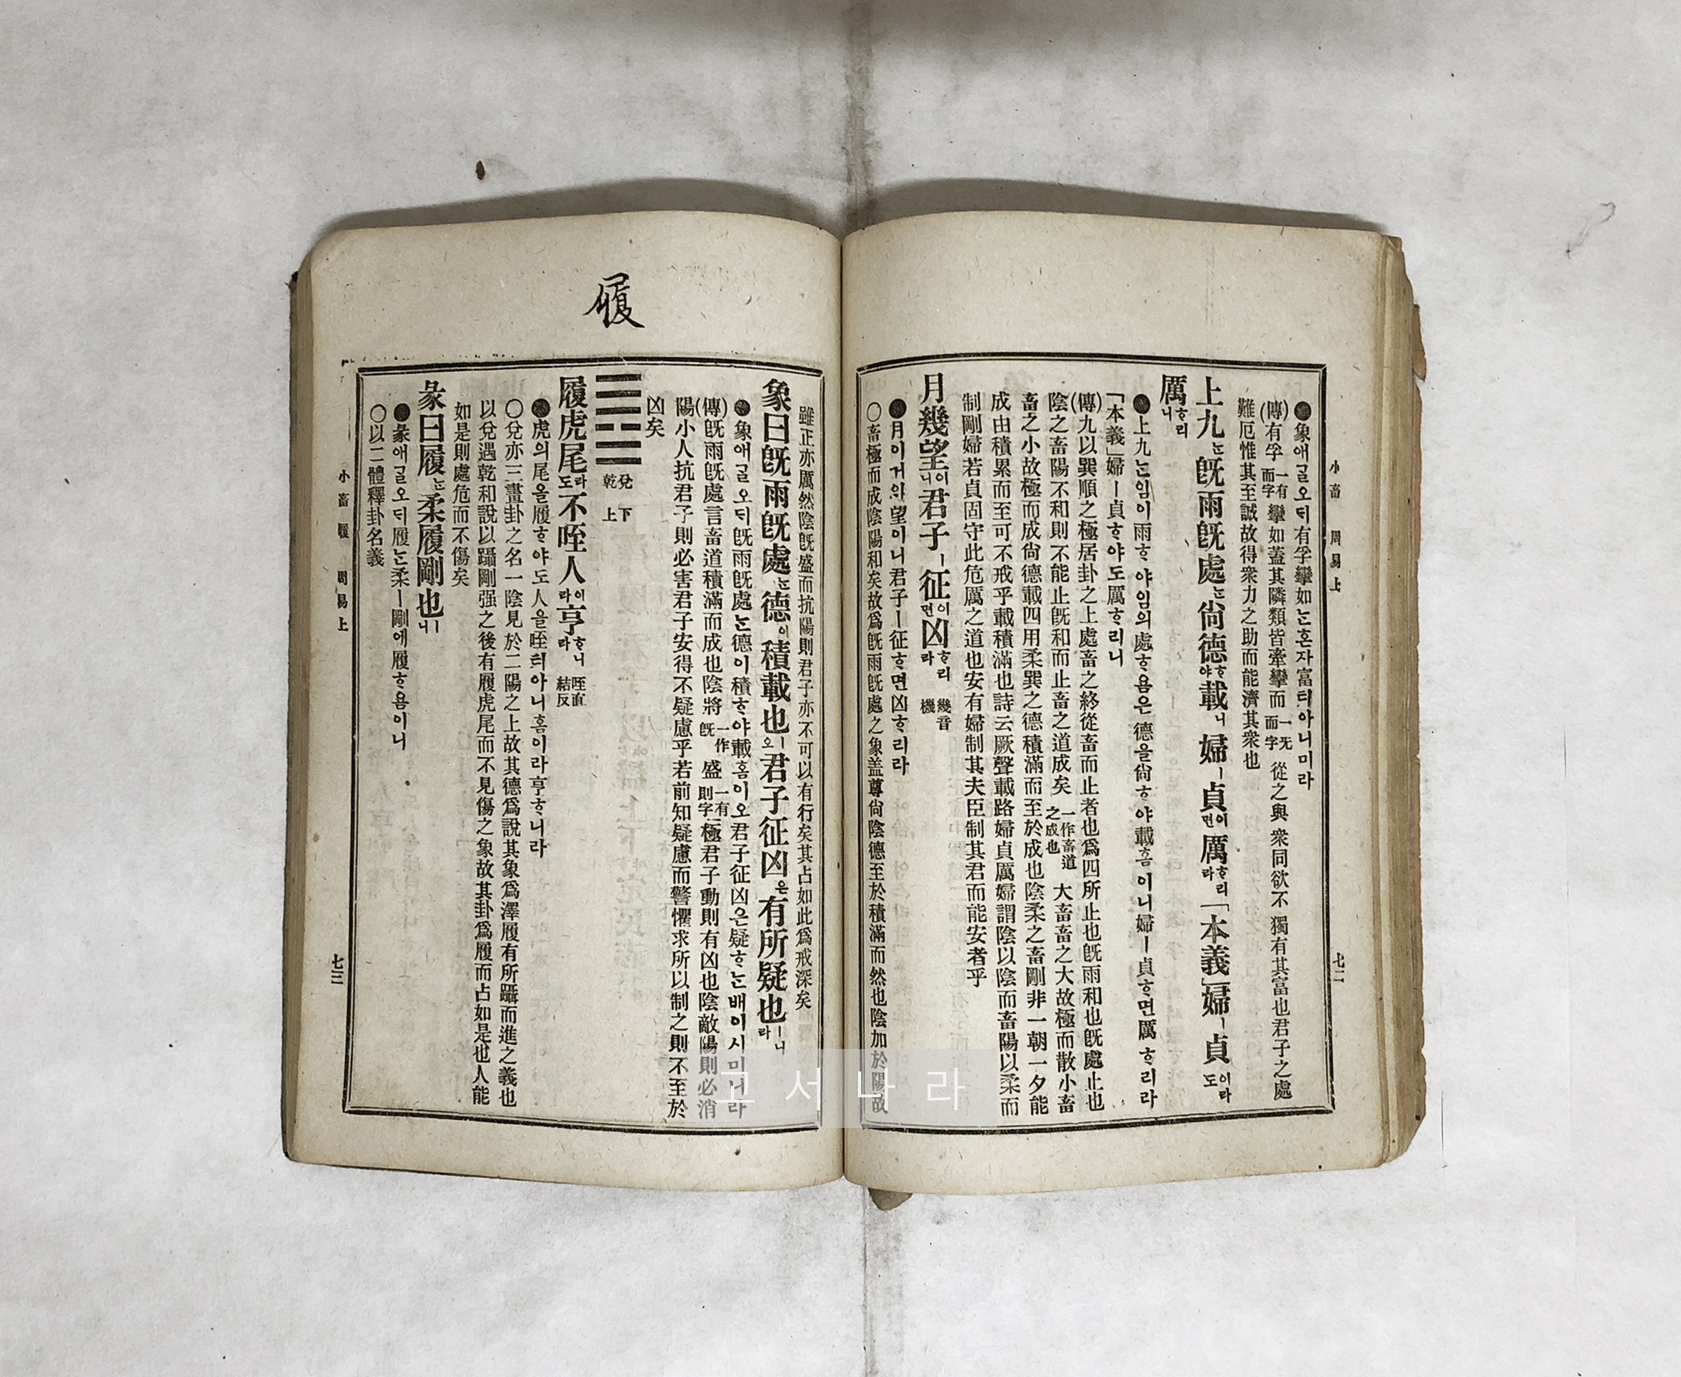 ●象애ᄀᆞᆯ오ᄃᆡ有孚攣如ᄂᆞᆫ혼자富틔아니미라
(傳)有孚一有而字攣如蓋其隣類皆牽攣而一无而字從之與衆同欲不獨有其富也君子之處
難厄惟其至誠故得衆力之助而能濟其衆也
上九ᄂᆞᆫ旣雨旣處ᄂᆞᆫ尙德ᄒᆞ야載니婦ㅣ貞이면厲ᄒᆞ리라「本義」婦ㅣ貞이라도
厲ᄒᆞ리니
●上九ᄂᆞᆫ임이雨ᄒᆞ야임의處ᄒᆞ욤은德을尙ᄒᆞ야載홈이니婦ㅣ貞ᄒᆞ면厲ᄒᆞ리라
「本義」婦ㅣ貞ᄒᆞ야도厲ᄒᆞ리니
(傳)九以巽順之極居卦之上處畜之終從畜而止者也爲四所止也旣雨和也旣處止也
陰之畜陽不和則不能止旣和而止畜之道成矣一作畜道之成也大畜畜之大故極而散小畜
畜之小故極而成尙德載四用柔巽之德積滿而至於成也陰柔之畜剛非一朝一夕能
成由積累而至可不戒乎載積滿也詩云厥聲載路婦貞厲婦謂陰以陰而畜陽以柔而
制剛婦若貞固守此危厲之道也安有婦制其夫臣制其君而能安者乎
月幾望이니君子ㅣ征이면凶ᄒᆞ리라幾音機
●月이거의望이니君子ㅣ征ᄒᆞ면凶ᄒᆞ리라
○畜極而成陰陽和矣故爲旣雨旣處之象盖尊尙陰德至於積滿而然也陰加於陽故
小畜 周易上 七二
雖正亦厲然陰旣盛而抗陽則君子亦不可以有行矣其占如此爲戒深矣
象曰旣雨旣處ᄂᆞᆫ德이積載也ㅣ오君子征凶은有所疑也ㅣ니라
●象애ᄀᆞᆯ오ᄃᆡ旣雨旣處ᄂᆞᆫ德이積ᄒᆞ야載홈이오君子征凶은疑ᄒᆞᄂᆞᆫ배이시미니라
(傳)旣雨旣處言畜道積滿而成也陰將一作旣盛一有則字極君子動則有凶也陰敵陽則必消
陽小人抗君子則必害君子安得不疑慮乎若前知疑慮而警懼求所以制之則不至於
凶矣
兌下
乾上
履虎尾도라不咥人이라亨ᄒᆞ니라咥直結反
●虎의尾을履ᄒᆞ야도人을咥틔아니홈이라亨ᄒᆞ니라
○兌亦三畫卦之名一陰見於二陽之上故其德爲說其象爲澤履有所躡而進之義也
以兌遇乾和說以躡剛强之後有履虎尾而不見傷之象故其卦爲履而占如是也人能
如是則處危而不傷矣
彖曰履ᄂᆞᆫ柔履剛也ㅣ니
●彖애ᄀᆞᆯ오ᄃᆡ履ᄂᆞᆫ柔ㅣ剛에履ᄒᆞ욤이니
○以二體釋卦名義
小畜 履 周易上 七三
履
고서나라